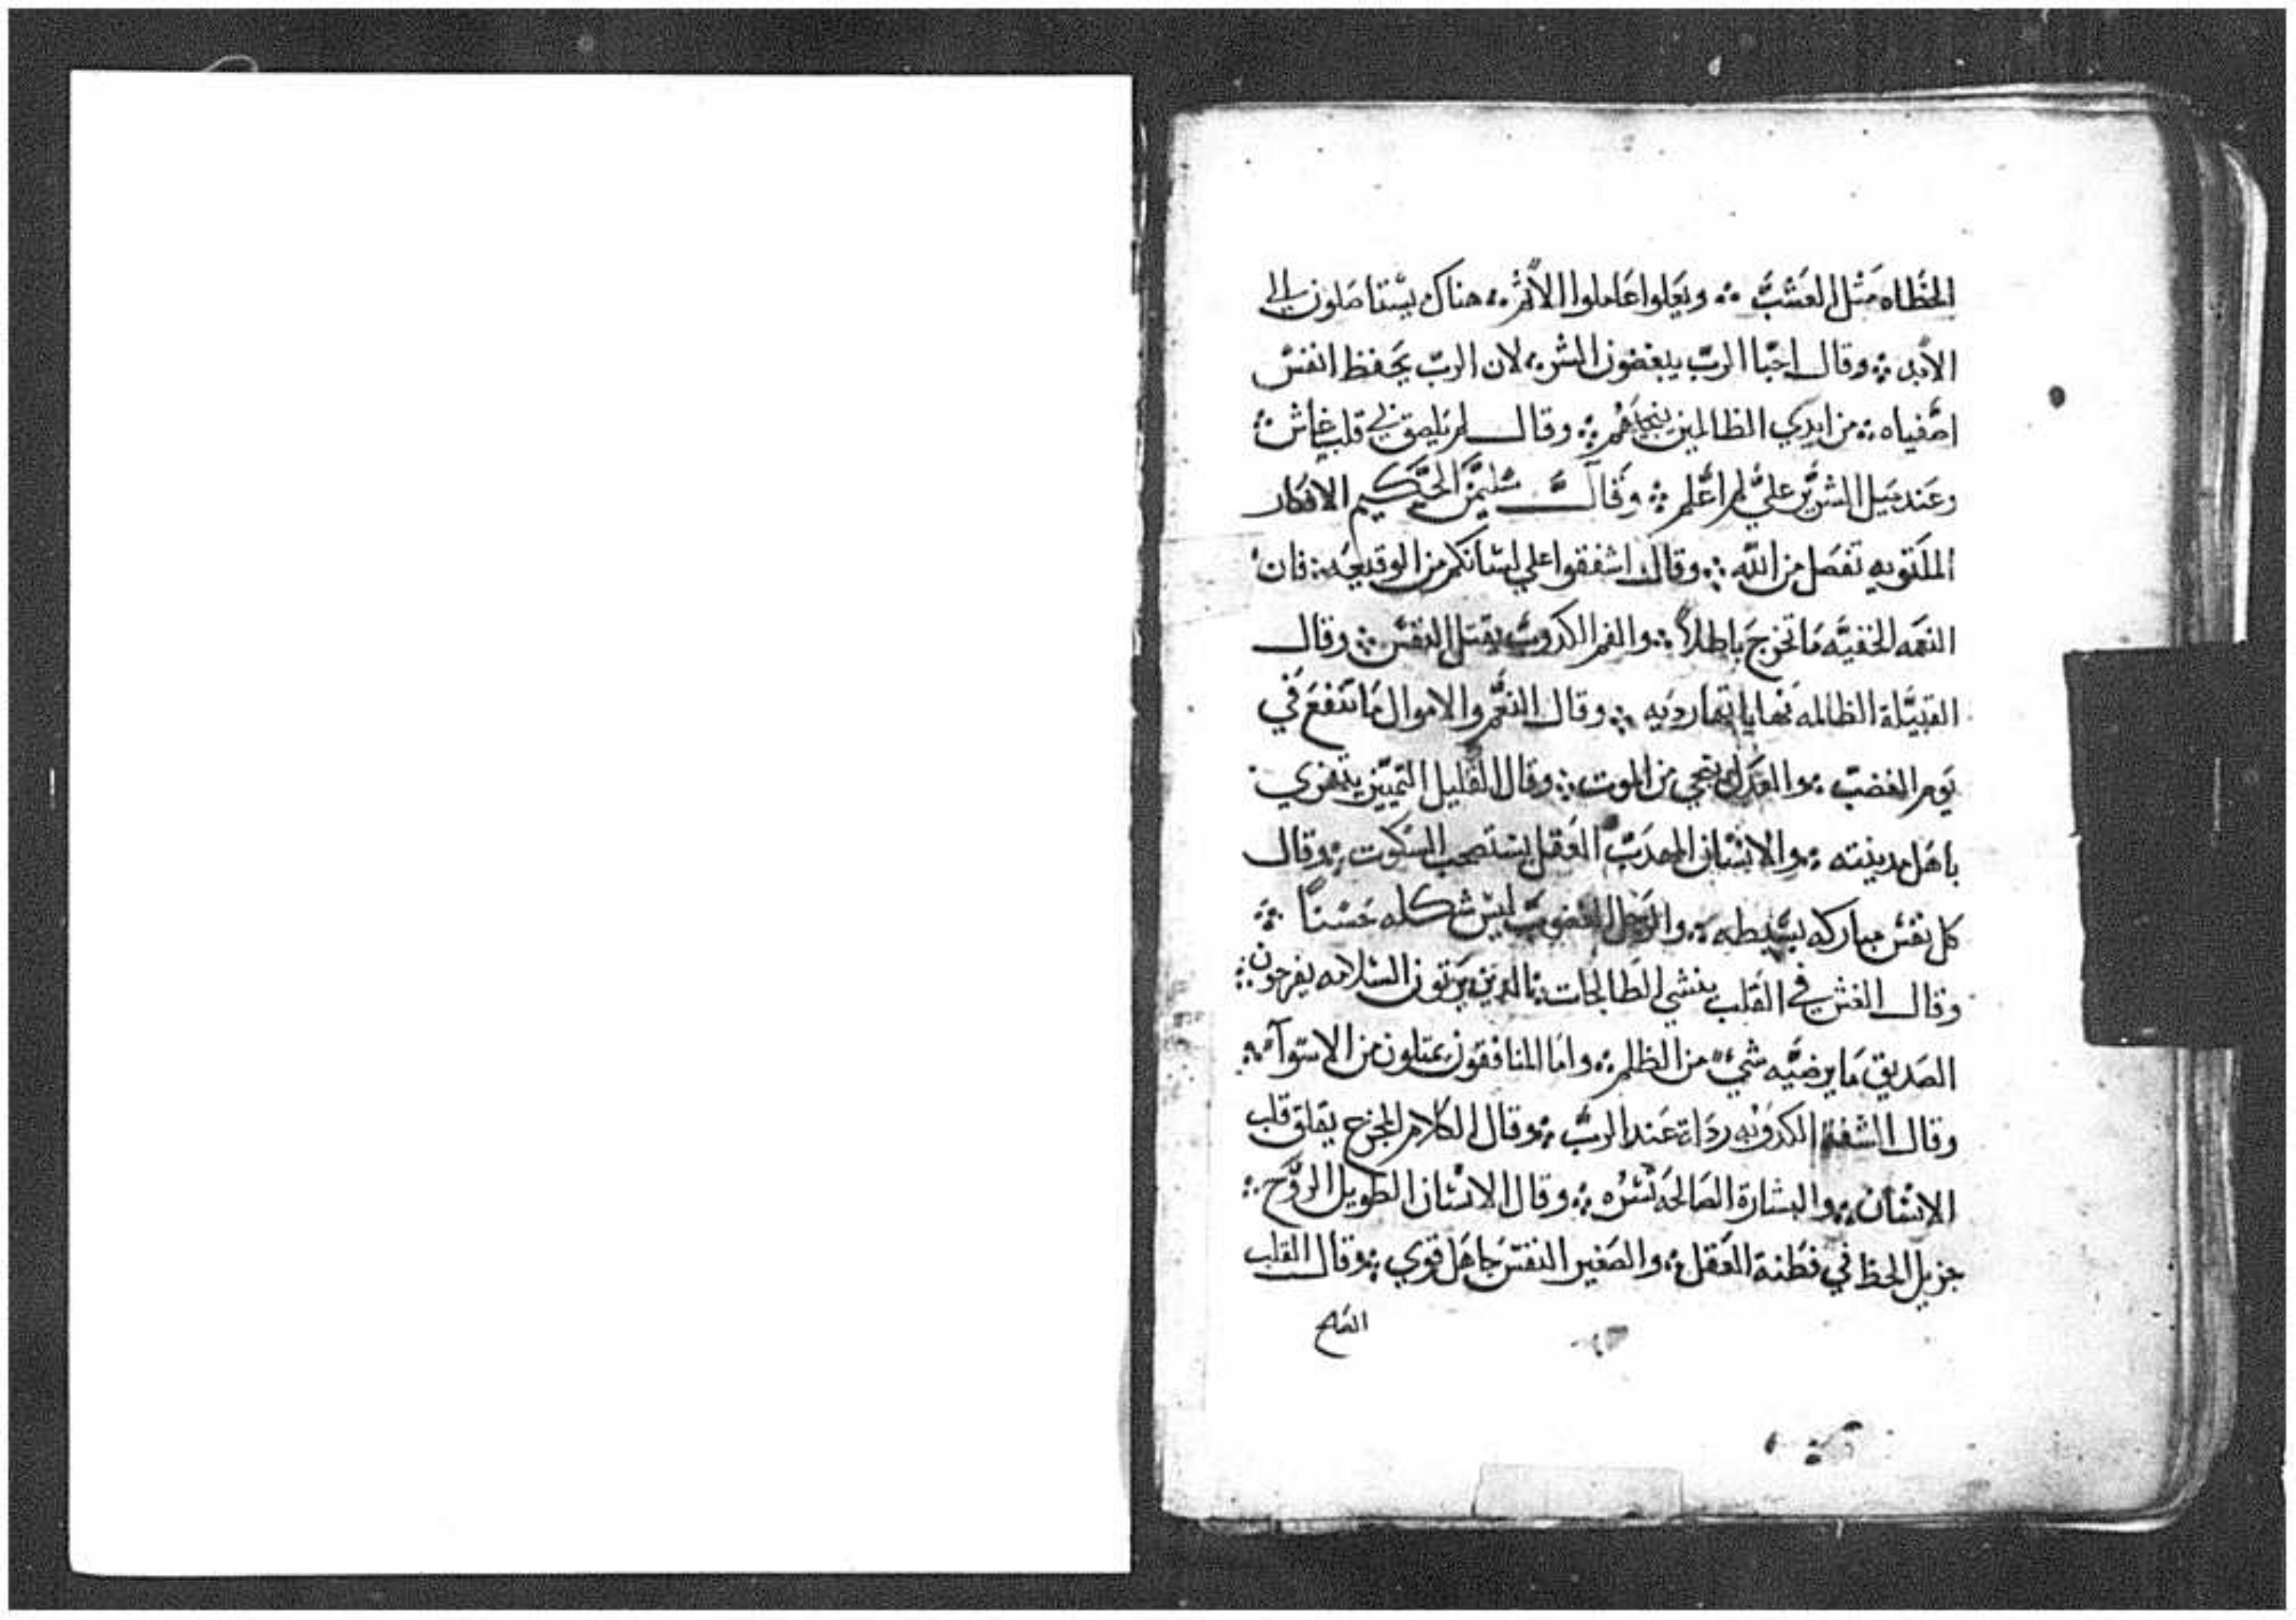 الخطاه مثل العشب ؞ ويعلوا عاملوا الاثم ؞ هناك يستاصلون الي
الأبد ؞ وقال احبا الرب يبغضون الشر ؞ لان الرب يحفظ انفس
اصفياه ؞ من ايدي الظالمين ينجيهم ؞ وقال لم يلصق بي قلب غاش ؞
وعند ميل الشرير علي لم اعلم ؞ وقال سليمن الحكيم الافكار
الملتويه تفصل من الله ؞ وقال اشفقوا علي لسانكم من الوقيعه ؞ فان
النغمه الخفيه ما تخرج باطلاً ؞ والفم الكدوب يقتل النفس ؞ وقال
القبيلة الظالمه نهاياتها رديه ؞ وقال النعم والاموال ما تنفع في
يوم الغضب ؞ والعدل ينجي من الموت ؞ وقال القليل التمييز يتهزي
باهل مدينته ؞ والانسان المهدب العقل يستصحب السكوت ؞ وقال
كل نفس مباركه بسيطه ؞ والرجل الغضوب ليس شكله حسناً ؞
وقال الغش في القلب ينشي الطالحات ؞ الدين يرتون السلامه يفرحون ؞
الصديق ما يرضيه شيء من الظلم ؞ واما المنافقون يمتلون من الاسوآء ؞
وقال الشفة الكدوبه ردالة عند الرب ؞ وقال الكلام المجزع يقلق قلب
الانسان ؞ والبشارة الصالحه تسره ؞ وقال الانسان الطويل الروح ؞
جزيل الحظ في فطنة العقل ؞ والصغير النفس جاهل قوي ؞ وقال القلب